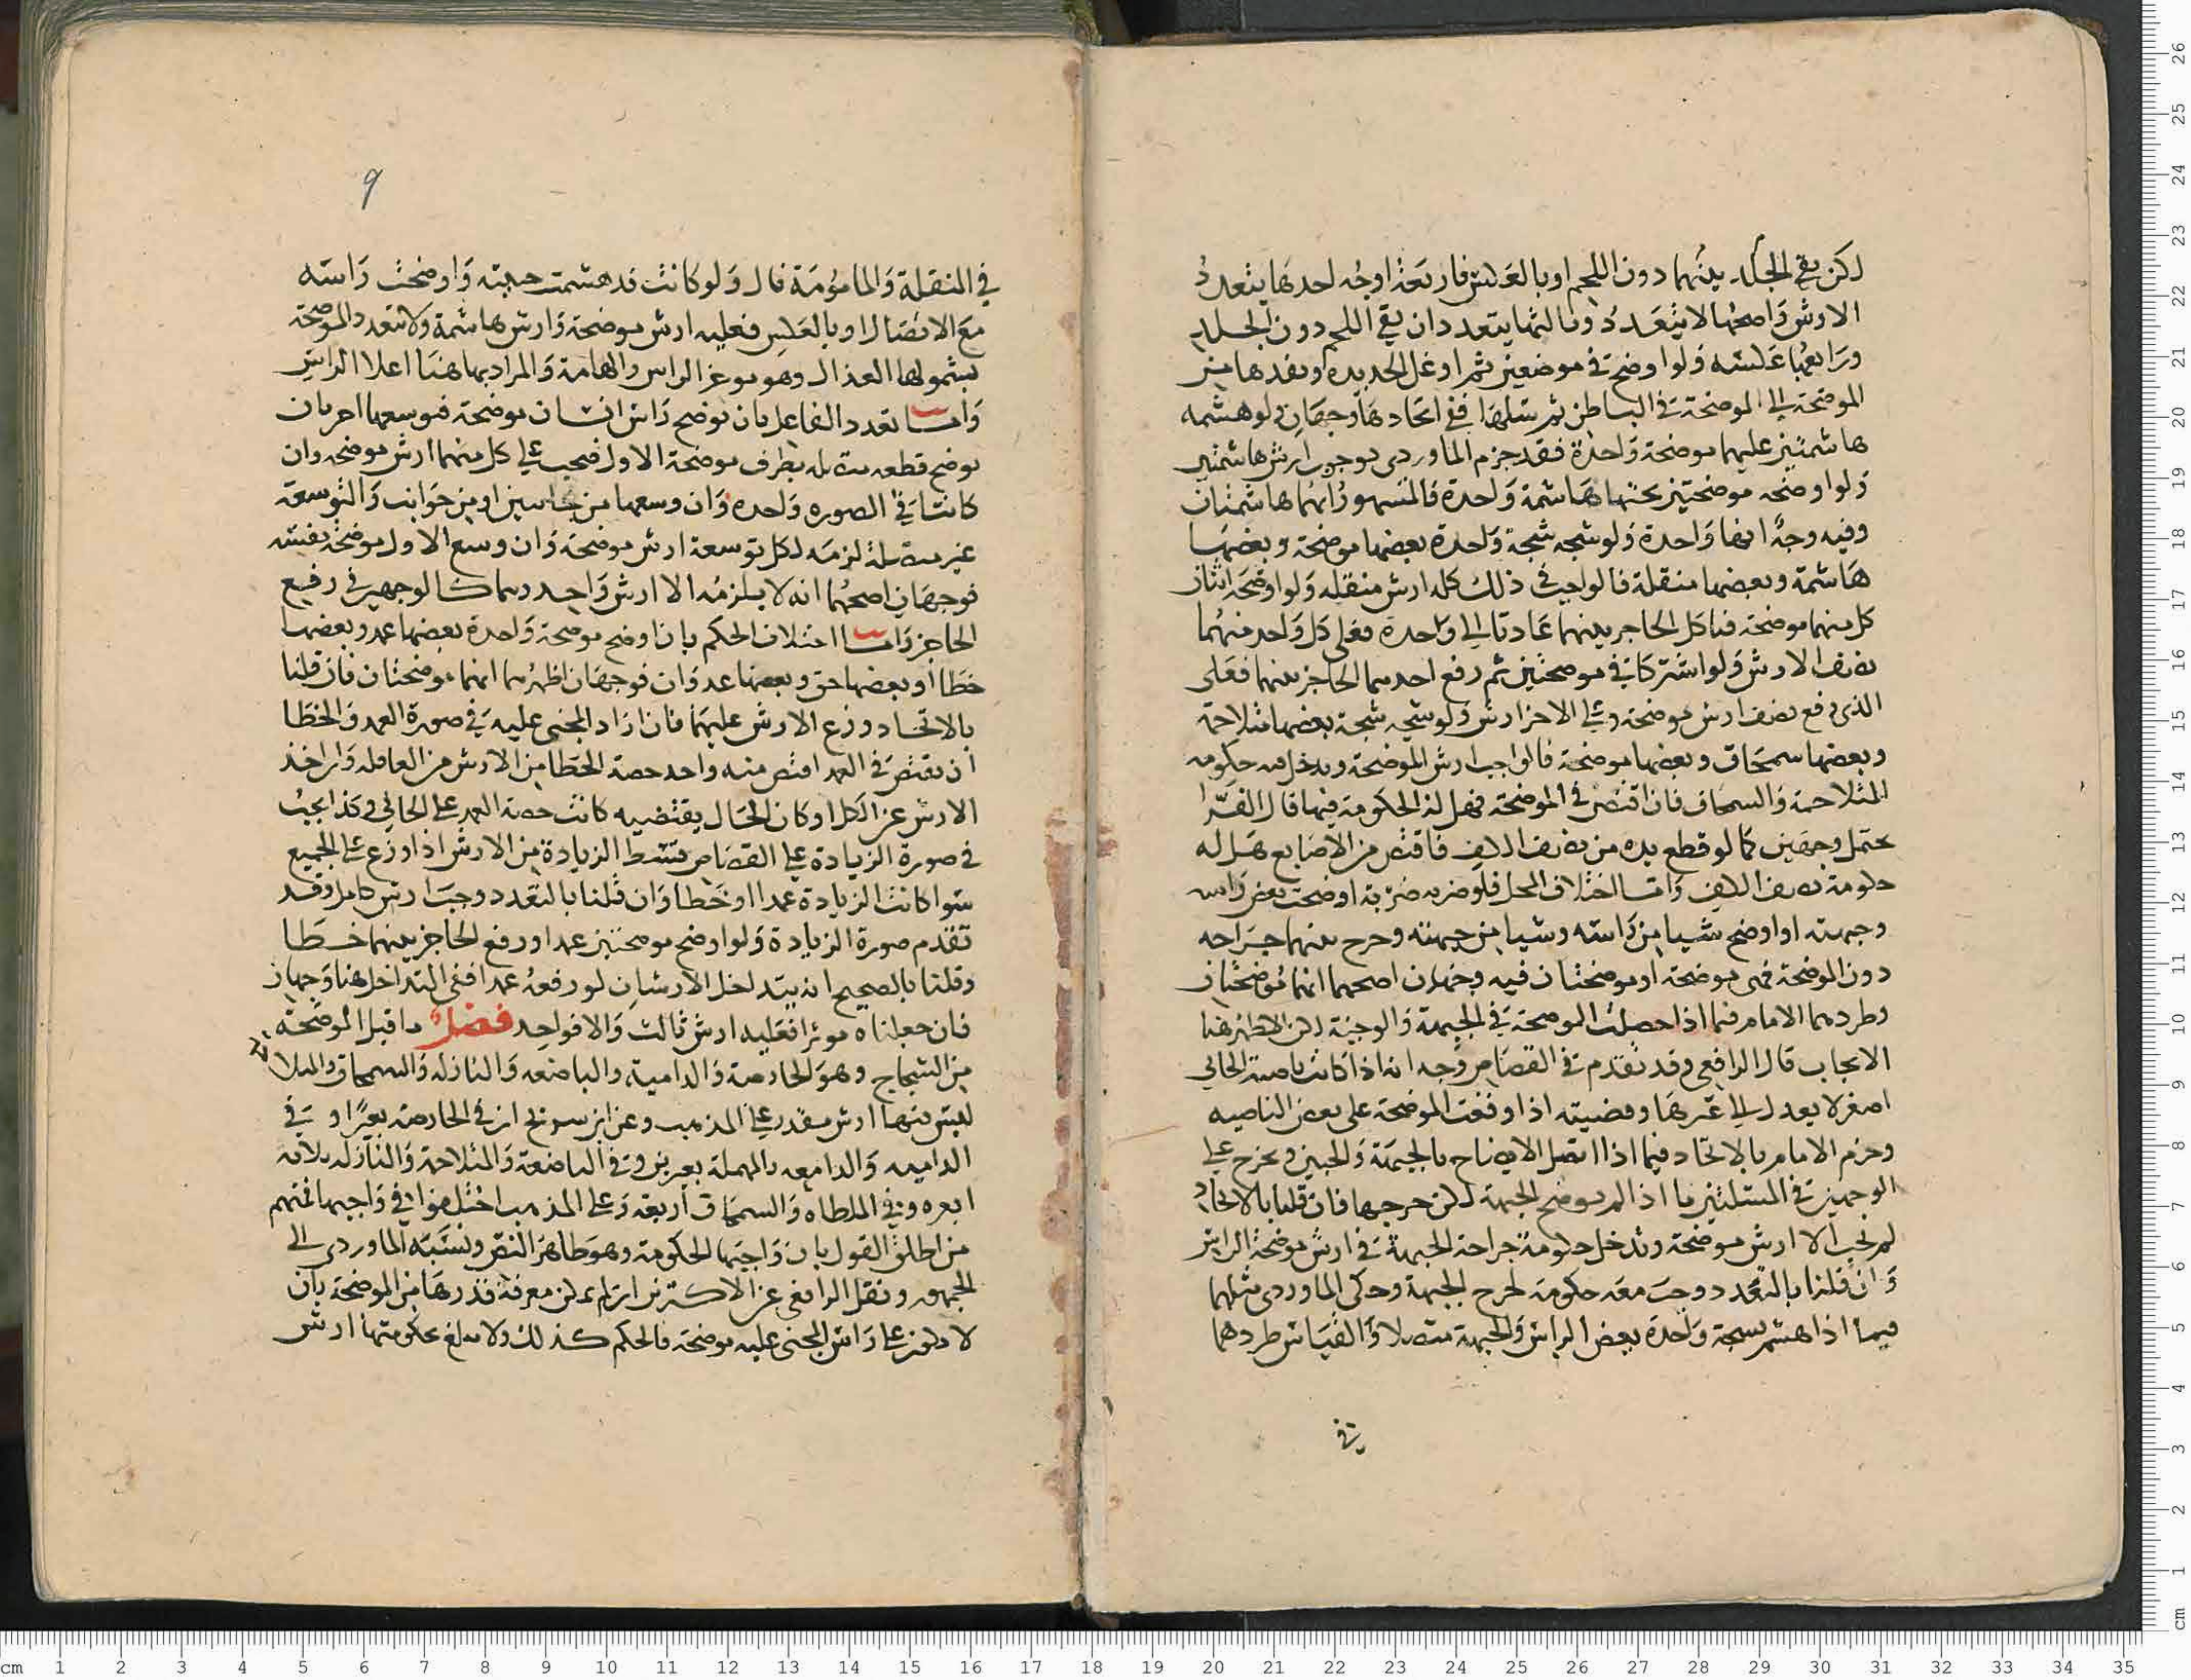 لكن بقي الجلد بينهما دون اللحم او بالعكس فاربعة اوجه احدها يتعدد
الارش واصحها لا يتعدد وثالثها يتعدد ان بقي اللحم دون الجلد
ورابعها عكسه ولو اوضح في موضعين ثم اوغل الحديدة ونفدها من
الموضحة الى الموضحة في الباطن ثم سلها ففي اتحادها وجهان ولو هشمه
هاشمتين عليهما موضحة واحدة فقد جزم الماوردي بوجوب ارش هاشمتين
ولو اوضحه موضحتين تحتهما هاشمة واحدة فالمشهور انهما هاشمتان
وفيه وجه انها واحدة ولو شجه شجة واحدة بعضها موضحة وبعضها
هاشمة وبعضها منقلة فالواجب في ذلك كله ارش منقلة ولو اوضحه اثنان
كل منهما موضحة فتاكل الحاجز بينهما عادتا الى واحدة فعلى كل واحد منهما
نصف الارش ولو اشتركا في موضحتين ثم رفع احدهما الحاجز بينهما فعلى
الذي رفع نصف ارش موضحة وعلى الاخر ارش ولو شجه شجة بعضها متلاحمة
وبعضها سمحاق وبعضها موضحة فالواجب ارش الموضحة ويدخل فيه حكومة
المتلاحمة والسمحاق فان اقتص في الموضحة فهل له الحكومة فيها قال الفرا
يحتمل وجهين كما لو قطع يده من نصف الكف فاقتص من الاصابع هل له
حكومة نصف الكف واما اختلاف المحل فلو ضربه ضربة اوضحت بعض راسه
وجبهته او اوضح شيا من راسه وشيا من جبهته وجرح بينهما جراحه
دون الموضحة فهي موضحة او موضحتان فيه وجهان اصحهما انهما موضحتان
وطردهما الامام فيما اذا حصلت الموضحة في الجبهة والوجنة لكن الاظهر هنا
الايجاب قال الرافعي وقد تقدم في القصاص وجه انه اذا كانت ناصية الجاني
اصغر لا يعدل الى غيرها وقضيته اذا وقعت الموضحة على بعض الناصيه
وجزم الامام بالاتحاد فيما اذا اتصل الايضاح بالجبهة والجبين ويخرج على
الوجهين في المسئلتين ما اذا لم يوضح الجبهة لكن جرحها فان قلنا بالاتحاد
لم يجب الا ارش موضحة وتدخل حكومة جراحة الجبهة في ارش موضحة الراس
وان قلنا بالتعدد وجب معه حكومة لجرح الجبهة وحكى الماوردي مثلهما
فيما اذا هشم بشجة واحدة بعض الراس والجبهة متصلا والقياس طردهما
في
9
في المنقلة والمامومة قال ولو كانت قد هشمت جبهته واوضحت راسه
مع الاتصال او بالعكس فعليه ارش موضحة وارش هاشمة ولا تتعدد الموضحة
بشمولها القذال وهو موخر الراس والهامة والمراد بها هنا اعلا الراس
واما تعدد الفاعل بان يوضح راس انسان موضحة فيوسعها اخر بان
يوضح قطعه متصله بطرف موضحة الاول فيجب على كل منهما ارش موضحه وان
كانتا في الصوره واحده وان وسعها من جانبين او من جوانب والتوسعة
غير متصلة لزمه لكل توسعة ارش موضحة وان وسع الاول موضحة نفسه
فوجهان اصحهما انه لا يلزمه الا ارش واحد وهما كالوجهين في رفع
الحاجز واما اختلاف الحكم بان اوضح موضحة واحدة بعضها عمد وبعضها
خطا او بعضها حق وبعضها عدوان فوجهان اظهرهما انهما موضحتان فان قلنا
بالاتحاد وزع الارش عليهما فان اراد المجني عليه في صورة العمد والخطا
ان يقتص في العمد اقتص منه واخذ حصة الخطا من الارش من العاقله وان اخذ
الارش عن الكل او كان الحال يقتضيه كانت حصة العمد على الجاني وكذا يجب
في صورة الزيادة على القصاص قسط الزيادة من الارش اذا وزع على الجميع
سوا كانت الزيادة عمدا او خطا وان قلنا بالتعدد وجب ارش كامل وقد
تقدم صورة الزيادة ولو اوضح موضحتين عمدا ورفع الحاجز بينهما خطا
وقلنا بالصحيح انه يتداخل الارشان لو رفعه عمدا ففي التداخل هنا وجهان
فان جعلناه موثرا فعليه ارش ثالث والا فواحد فصل ما قبل الموضحة
من الشجاج وهو الحارصة والدامية والباضعه والنازله والسمحاق والمتلا
ليس فيها ارش مقدر على المذهب وعن ابن سريج ان في الحارصة بعيرا وفي
الداميه والدامعه بالمهملة بعيرين وفي الباضعة والمتلاحمة والنازله ثلاثة
ابعره وفي الملطاه والسمحاق اربعة وعلى المذهب اختلفوا في واجبها فمنهم
من اطلق القول بان واجبها الحكومة وهو ظاهر النص ونسبه الماوردي الى
الجمهور ونقل الرافعي عن الاكثرين ان لم يمكن معرفة قدرها من الموضحة بان
لا يكون على راس المجني عليه موضحة فالحكم كذلك ولا يبلغ بحكومتها ارش